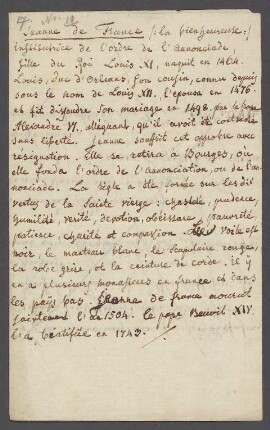 N.o 12
Jeanne de France /:la bienheureuse:/
institutrice de l'ordre de l'annonciade,
fille du Roi Louis XI, naquit en 1464.
Louis, duc d'Orleans, son cousin, connu depuis
sous le nom de Louis XII. l'epousa en 1476.
et fit dissoudre son mariage en 1498. par le pape
Alexandre VI, alléguant, qu'il avoit été contracté
sans liberté. Jeanne souffrit cet opprobre avec
resignation. Elle se retira à Bourges, ou
elle fonda l'ordre de l'annonciation, ou de l'an-
nonciade. La règle a été formée sur les dix
vertus de la Sainte vierge: chasteté, prudence,
humilité, verité, devotion, obeissance, pauvreté,
patience, charité et compassion. Le voile est
noir, le manteau blanc, le scapulaire rouge,
la robe grise, et la ceinture de corde. il y
en a plusieurs monasteres en france et dans
les pays bas. Jeanne de france mourut
saintement l'an 1504. le pape Benoit XIV
l'a béatifiée en 1743.